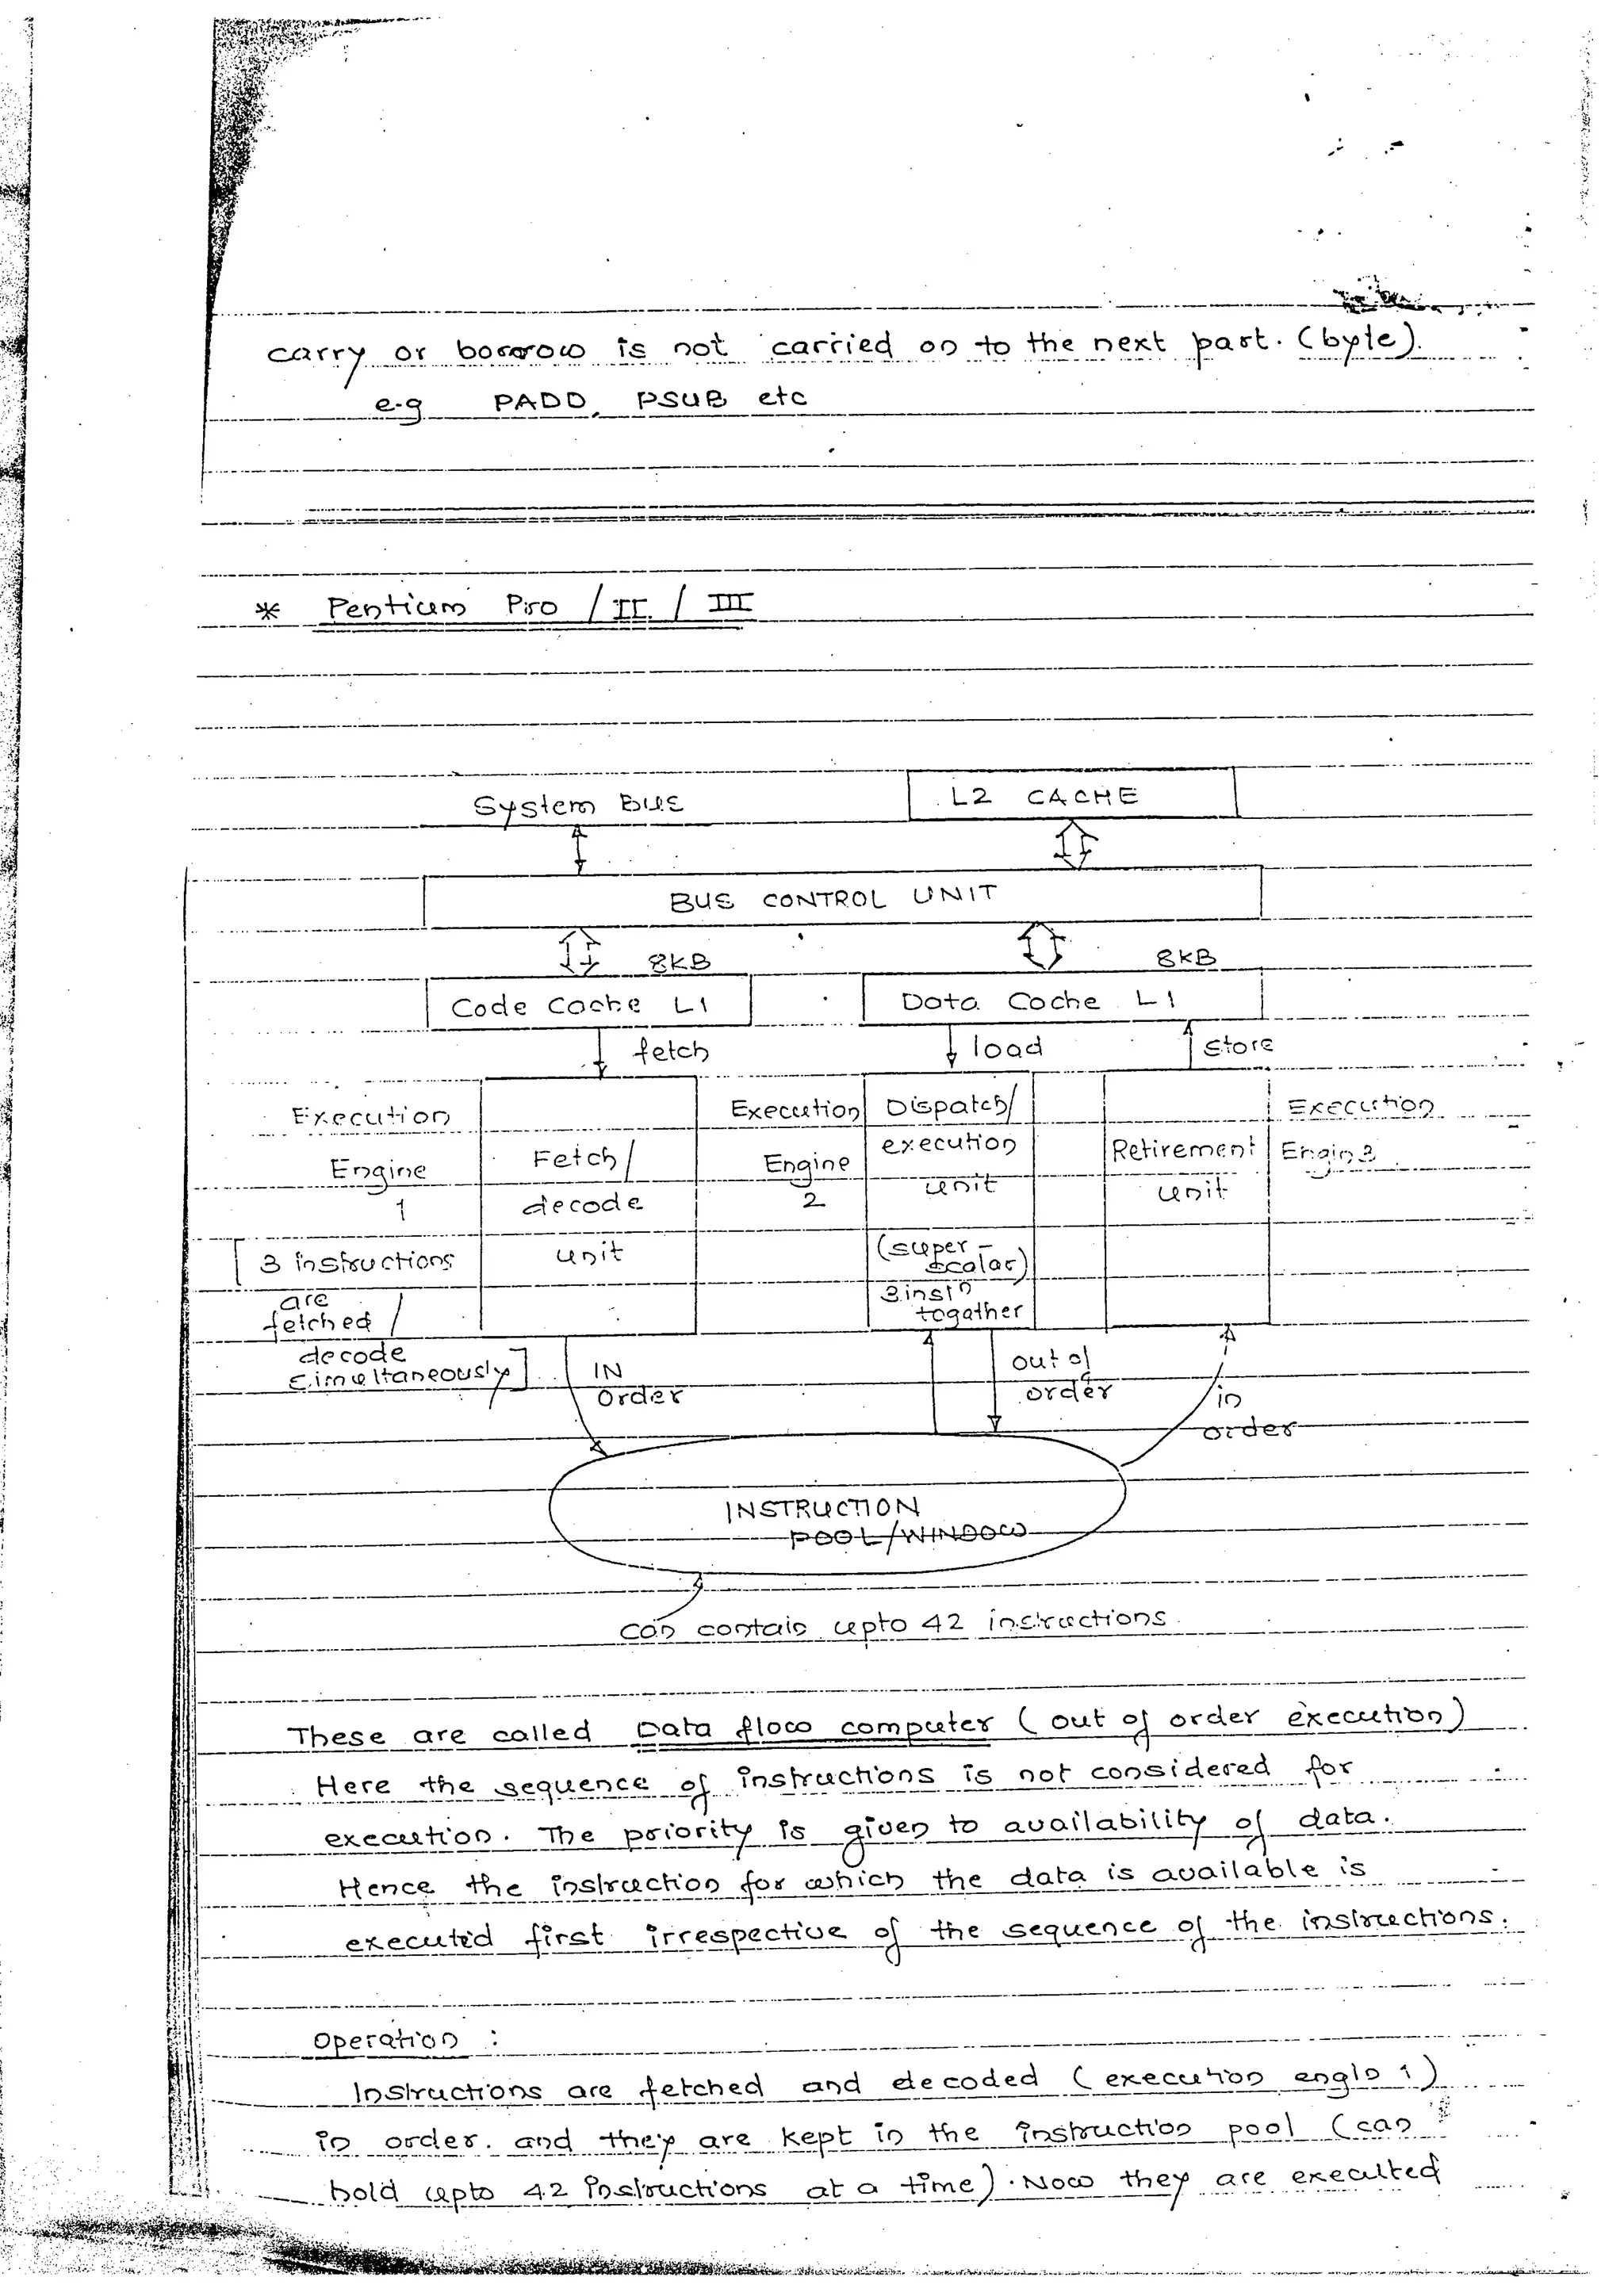 carry or borrow is not carried on to the next part. (byte).
e.g PADD, PSUB etc
* Pentium Pro / II / III
System BUS
L2 CACHE
BUS CONTROL UNIT
8KB
8KB
Code Cache L1
Data Cache L1
fetch
load
store
Execution
Engine
1
Fetch/
decode
unit
Execution
Engine
2
Dispatch/
execution
unit
(super-
scalar)
3 instn
togather
Retirement
unit
Execution
Engin 3
[3 instructions
are
fetched /
decode
simultaneously]
IN
order
out of
order
in
order
INSTRUCTION
POOL/WINDOW
can contain upto 42 instructions.
These are called Data flow computer (out of order execution)
Here the sequence of instructions is not considered for
execution. The priority is given to availability of data.
Hence the instruction for which the data is available is
executed first irrespective of the sequence of the instructions.
Operation :
Instructions are fetched and decoded (execution engin 1)
in order. and they are kept in the instruction pool (can
hold upto 42 instructions at a time). Now they are executed